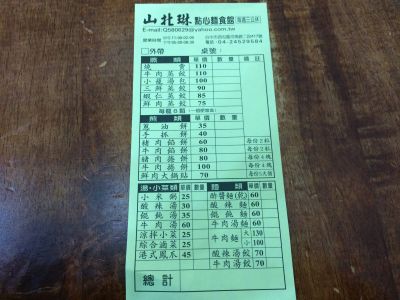 山北琳 點心麵食館 每週三公休
E-mail:Q580629@yahoo.com.tw
電話:04-24529684
□外帶 桌號:
蒸類 單價 數量 備註
燒賣 110
牛肉蒸餃 110
小籠湯包 100
三鮮蒸餃 90
蝦仁蒸餃 85
鮮肉蒸餃 75
煎類 單價 數量
蔥油餅 35
手抓餅 40
豬肉餡餅 60 每份2粒
牛肉餡餅 80 每份2粒
豬肉捲餅 80 每份4塊
牛肉捲餅 100 每份4塊
鮮肉大鍋貼 70
湯.小菜類 單價 數量 麵類 單價 數量
小米粥 25 酢醬麵(乾) 60
酸辣湯 30 酸辣麵 60
餛飩湯 35 餛飩麵 60
牛肉湯 60 牛肉湯麵 60
涼拌小菜 25 牛肉麵 大 130
綜合滷菜 25 小 100
港式鳳爪 45 酸辣湯餃 70
牛肉湯餃 70
總計